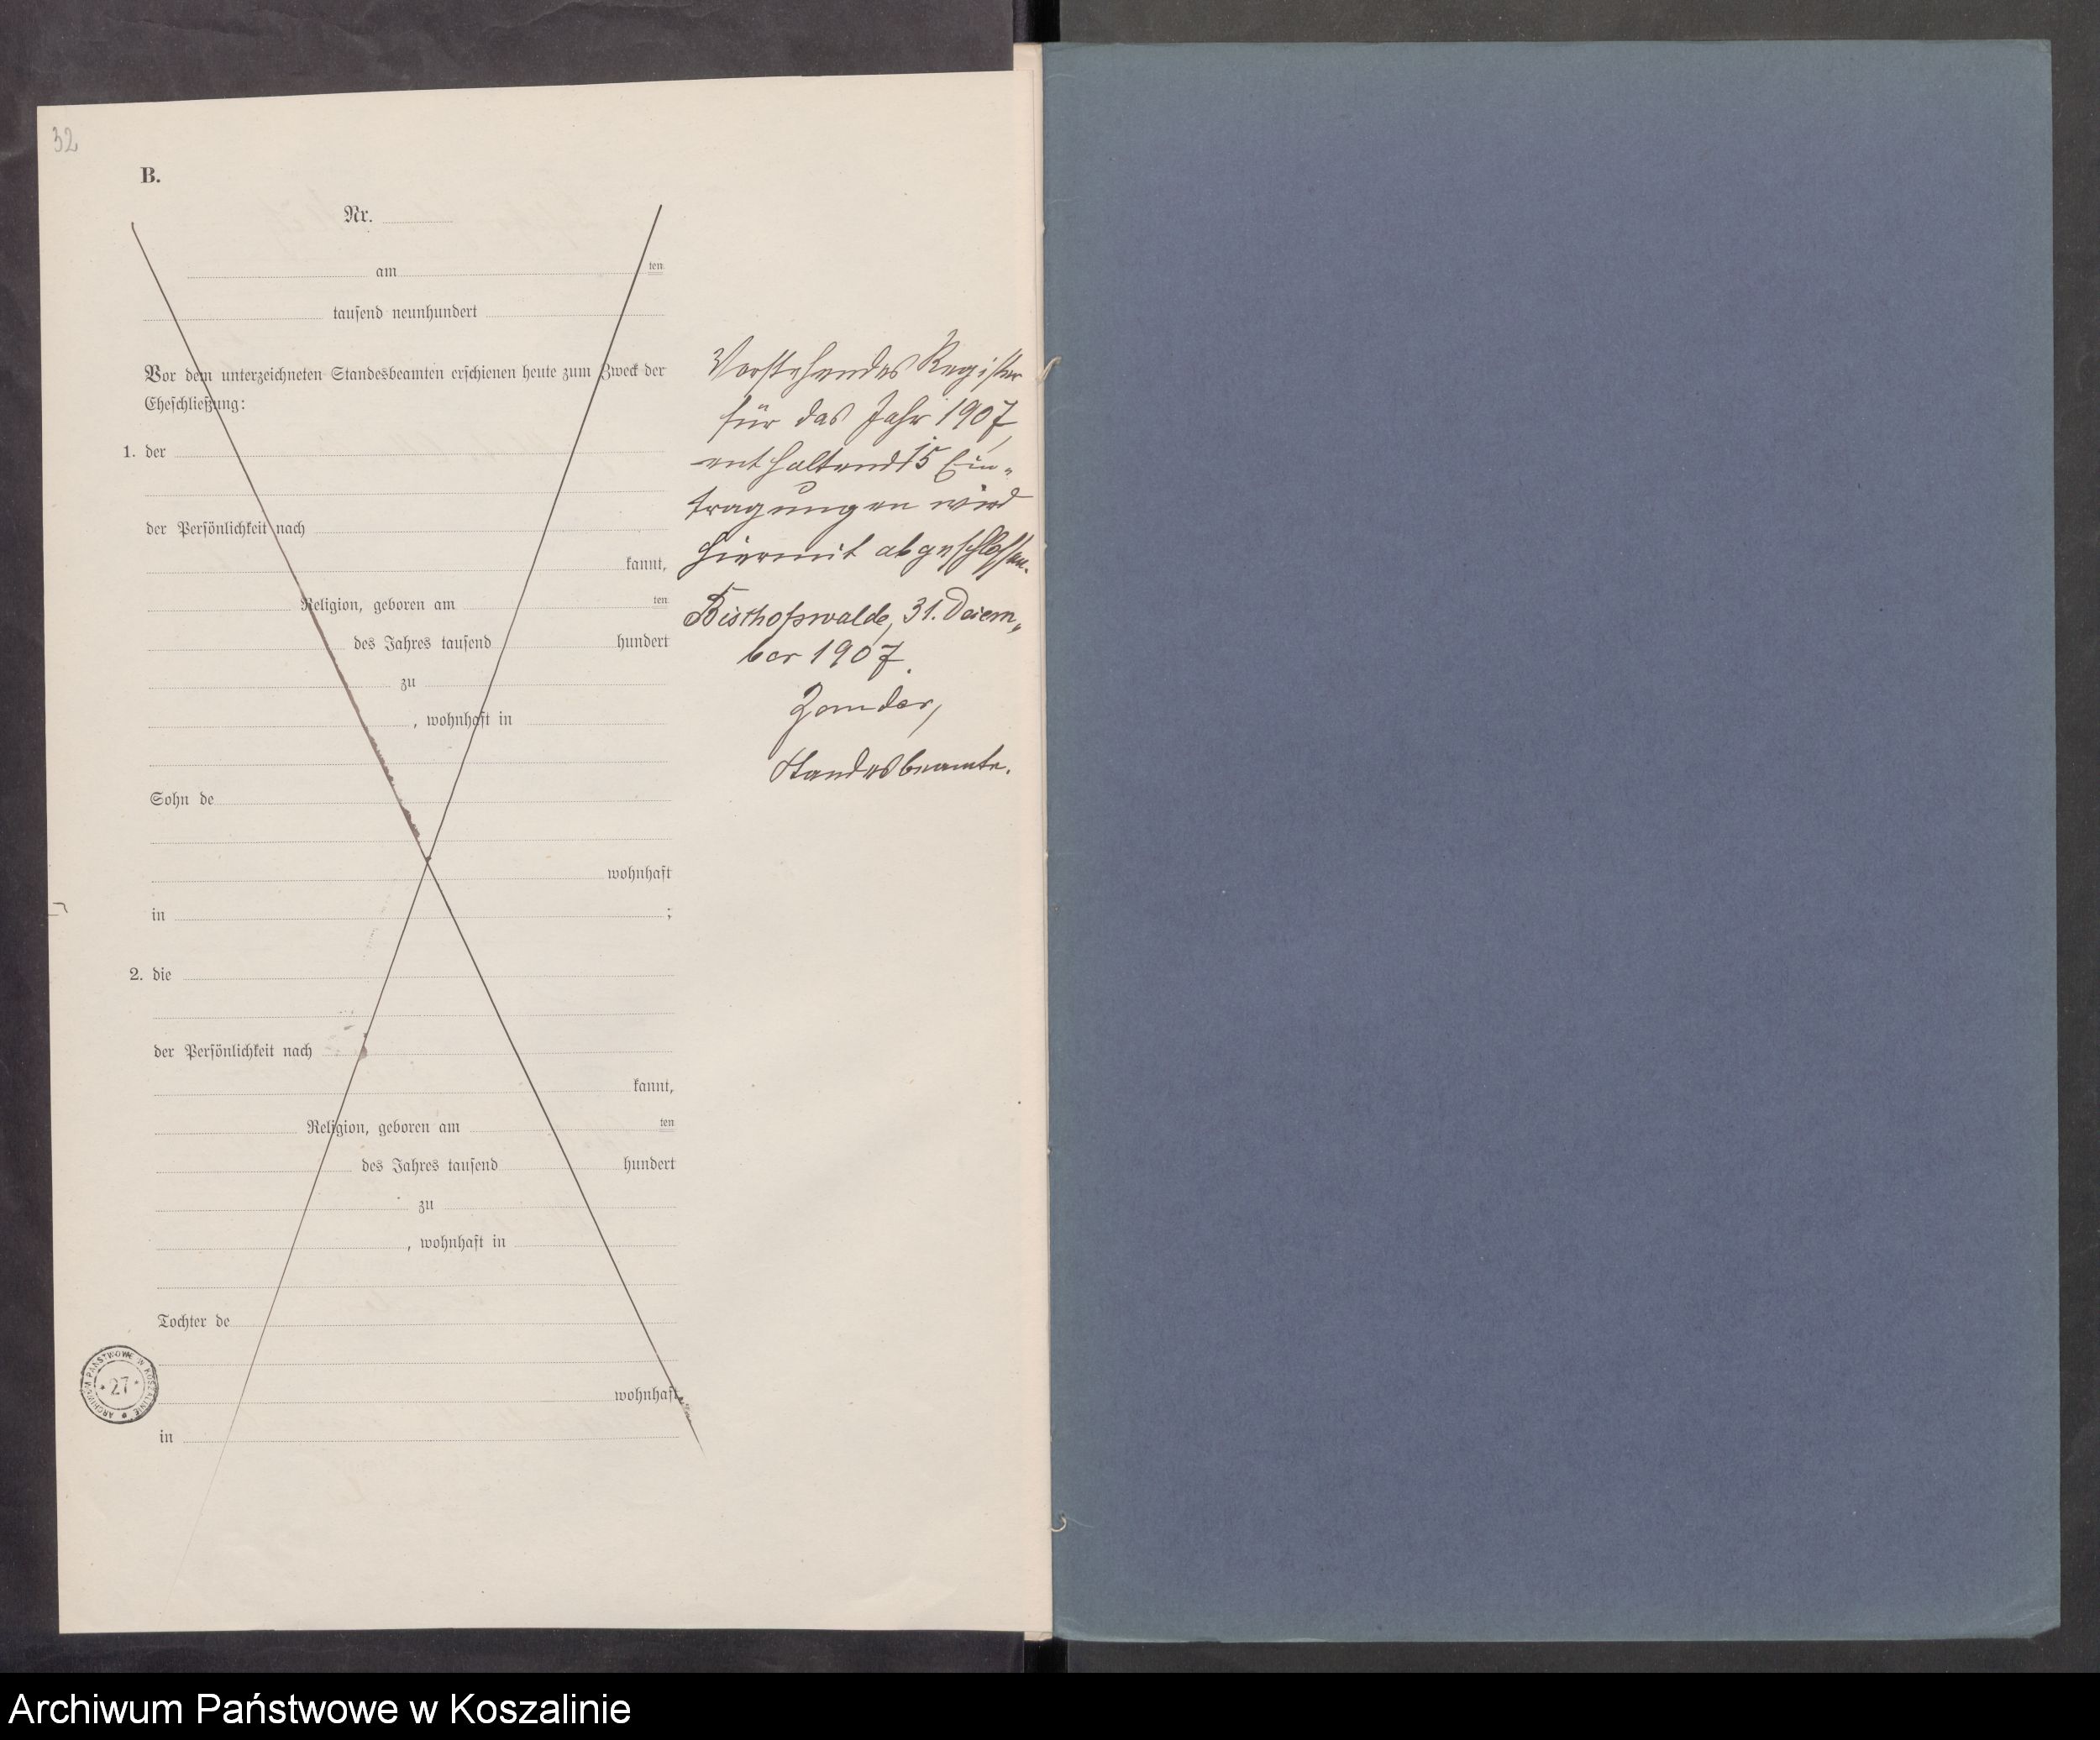 32
B.
Nr.
am ten
tausend neunhundert
Vor dem unterzeichneten Standesbeamten erschienen heute zum Zweck der
Eheschließung:
1. der
der Persönlichkeit nach
kannt,
Religion, geboren am ten
des Jahres tausend hundert
zu
, wohnhaft in
Sohn de
wohnhaft
in ;
2. die
der Persönlichkeit nach
kannt,
Religion, geboren am ten
des Jahres tausend hundert
zu
, wohnhaft in
Tochter de
wohnhaft
in
Vorstehendes Register
für das Jahr 1907,
enthaltend 15 Ein-
tragungen wird
hiermit abgeschlossen.
Bischofswalde, 31. Dezem-
ber 1907.
Zander,
Standesbeamte.
ARCHIWUM PAŃSTWOWE W KOSZALINIE
27
Archiwum Państwowe w Koszalinie